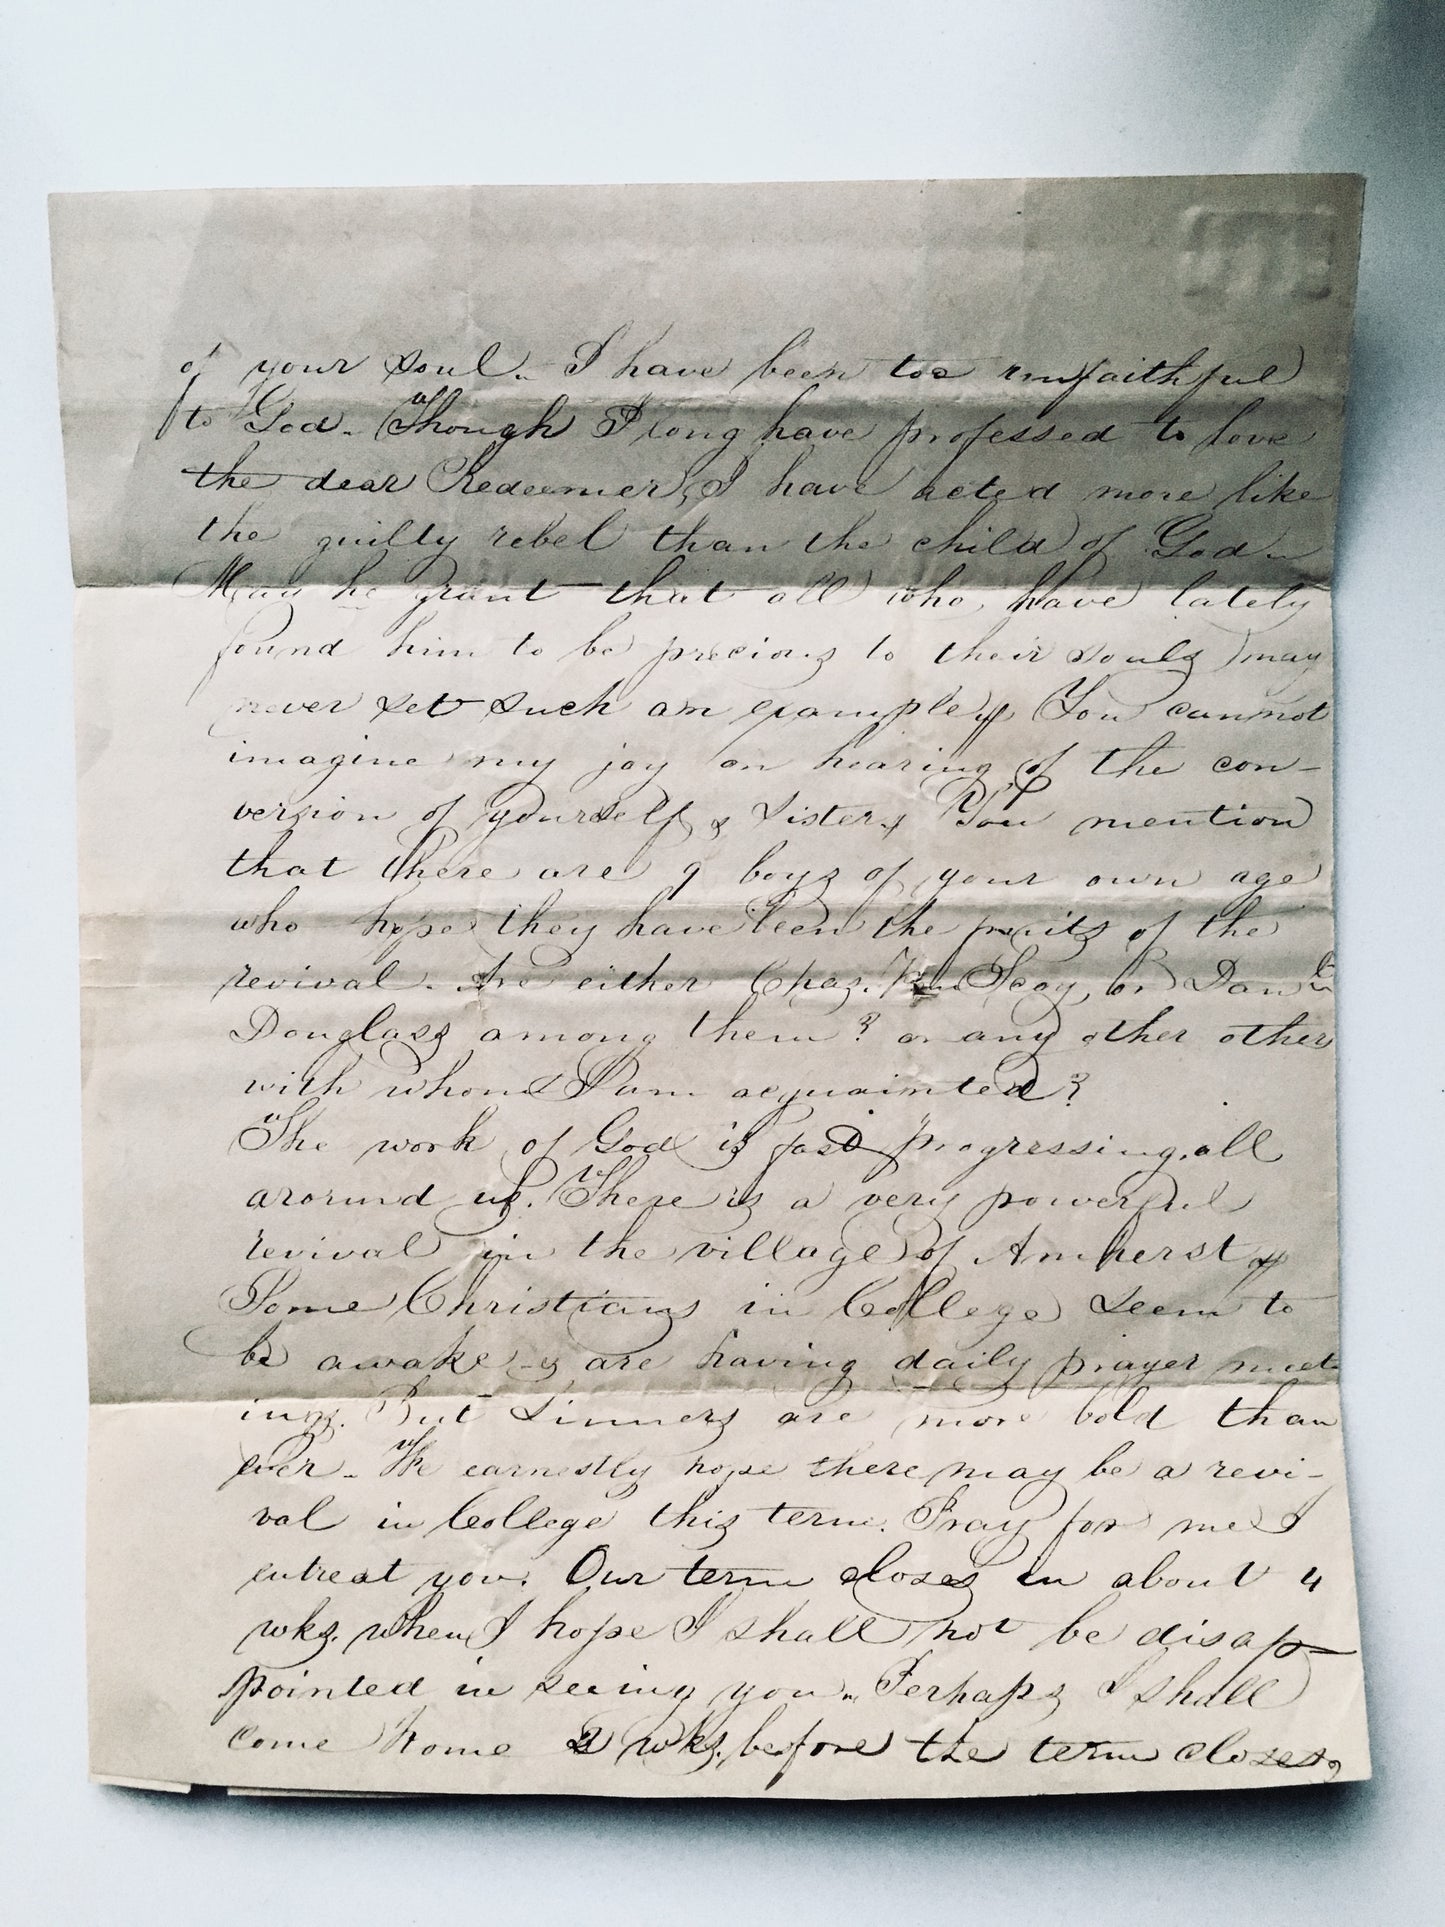 of your soul. I have been too unfaithful
to God. Though I long have professed to love
the dear Redeemer, I have acted more like
the guilty rebel than the child of God.
May he grant that all who have lately
found him to be precious to their souls may
never set such an example. You cannot
imagine my joy on hearing of the con-
version of yourself & Sister. You mention
that there are 9 boys of your own age
who hope they have been the fruits of the
revival. Are either Chas. Scoy, or Danl
Douglass among them? or any other other
with whom I am acquainted?
The work of God is fast progressing all
around us. There is a very powerful
revival in the village of Amherst
Some Christians in College seem to
be awake & are having daily prayer meet-
ings. But Sinners are more bold than
ever. We earnestly hope there may be a revi-
val in College this term. Pray for me I
entreat you. Our term closes in about 4
wks. when I hope I shall not be disap-
pointed in seeing you. Perhaps I shall
come home 2 wks. before the term closes,